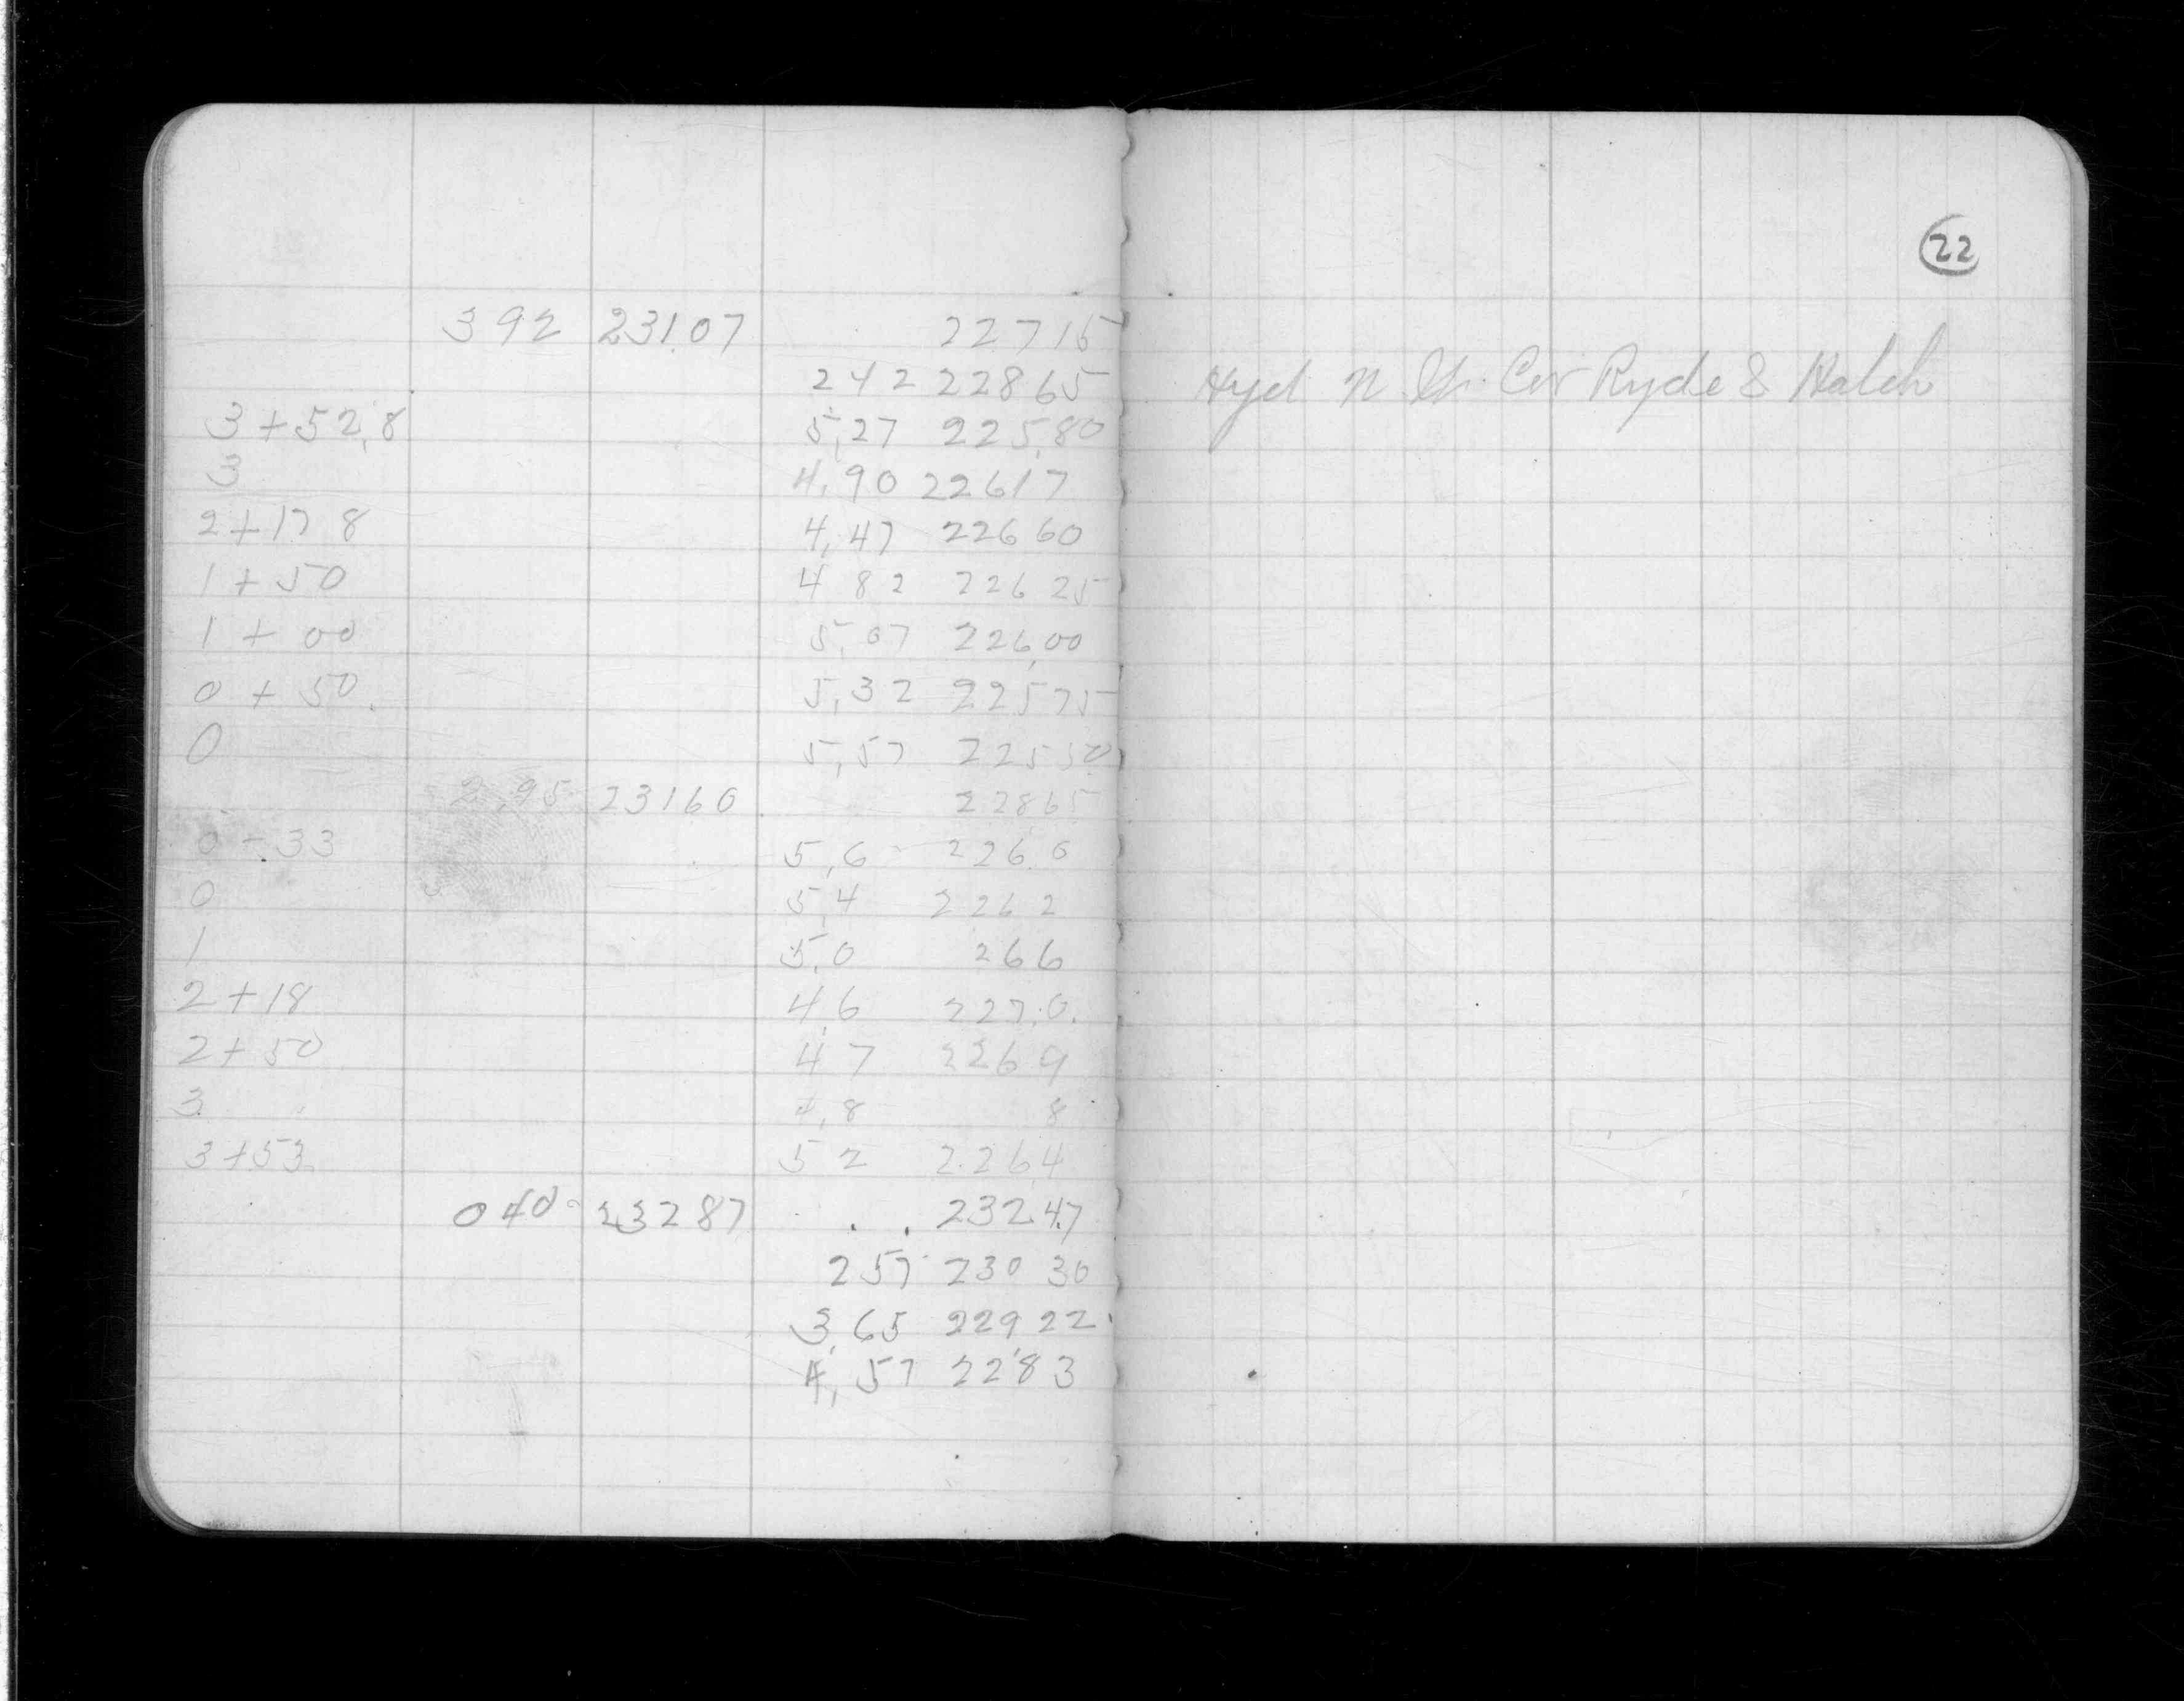 392 231.07 22715
242 22865
3+52.8 5,27 225,80
3 4,90 22617
2+17 8 4,47 22660
1+50 4 82 226 25
1+00 5,07 226,00
0+50. 5,32 22575
0 5,57 22550
2.95 23160 22865
0-33 5,6 226 0
0 5,4 2262
1 5,0 266
2+18 4,6 227.0.
2+50 4 7 2269
3 4,8 8
3+53 5 2 2264
040 23287 232.47
257 230 30
3,65 229 22
4,57 2283
22
Hyd N Cor Ryde & Halch